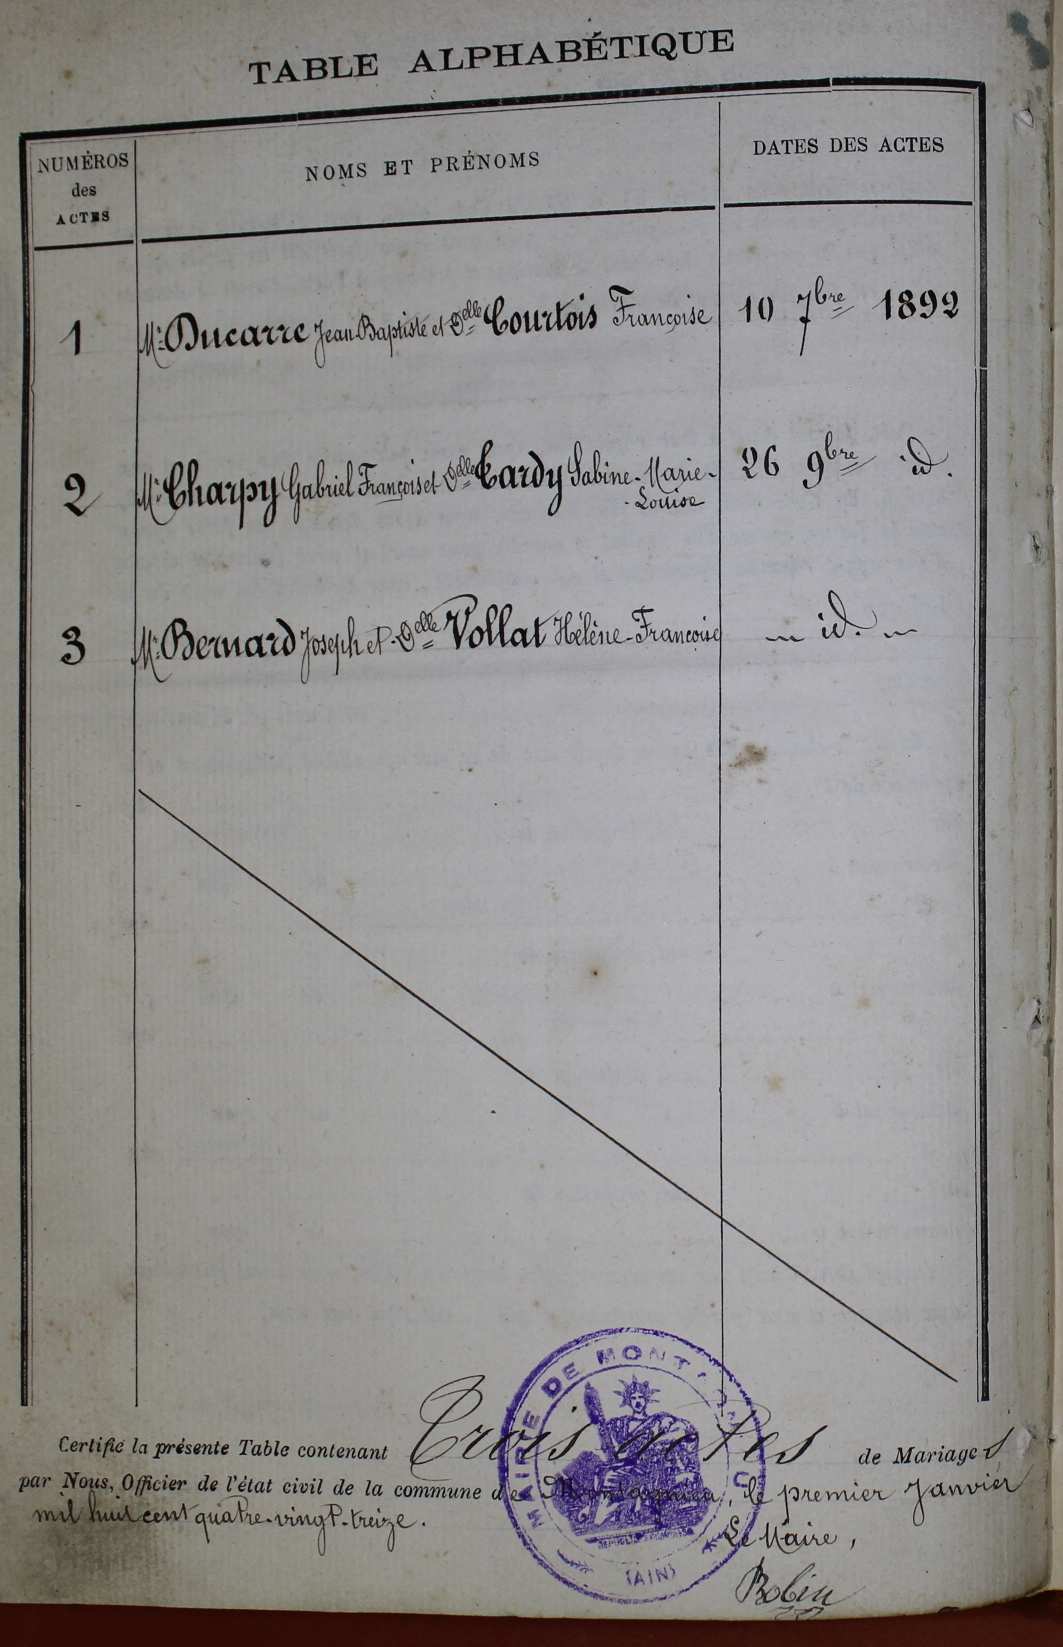 TABLE ALPHABÉTIQUE
NUMÉROS
des
ACTES
NOMS ET PRÉNOMS
DATES DES ACTES
1 Mr. Ducarre Jean-Baptiste et Delle Courtois Françoise 10 7bre 1892
2 Mr. Charpy Gabriel François et Delle Cardy Sabine-Marie-
-Louise
26 9bre id.
3 Mr. Bernard Joseph et Delle Vollat Hélène-Françoise — id. —
MAIRIE DE MONT
(AIN)
Certifié la présente Table contenant Trois actes de Mariages
par Nous, Officier de l'état civil de la commune de Montagnieu, le premier Janvier
mil huit cent quatre-vingt-treize.
Le Maire,
Robin